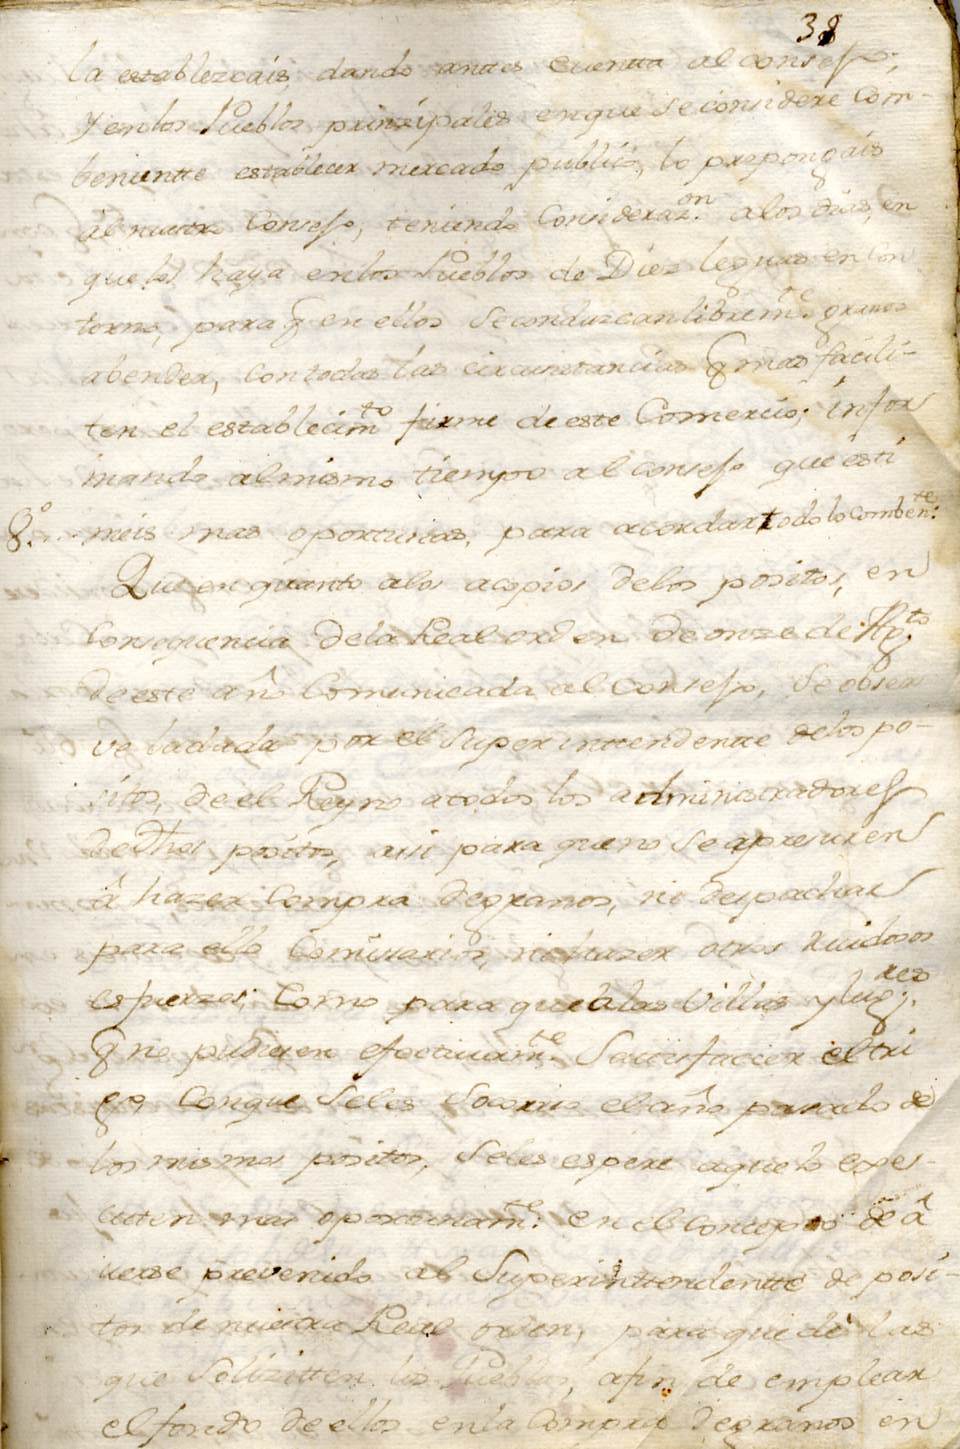 38
la establezcais, dando antes cuentta al consejo;
Y en los Pueblos prinzipales en que se considere com-
beniente establecer mercado publico, lo propongais
al nuestro Consejo, teniendo Consideraz.on a los dias, en
que los haya en los Pueblos de Diez leguas en con
torno, para q en ellos se conduzcan librem.te granos
abender, con todas las circunstancias q mas facili-
ten el establecim.to firme de este Comercio; infor
mando al mismo tiempo al consejo que esti
8.o meis mas oportunas, para acordar todo lo comben.te
Que en quanto a los acopios de los positos, en
Consequencia de la Real orden de onze de Ag.to
de este año Comunicada al Consejo, se obser
ve la dada por el superinttendentte de los po-
sitos, de el Reyno a todos los administradores
de dhos positos, asi para que no se apresuren
á hazer compra de granos, ni despachar
para ello Comisarios, ni hazer otros ruidosos
esfuerzos; Como para que a las Villas y lug.res
q no pudieren efectivam.te Sattisfaccer el tri
go con que se les socorrio el año pasado de
los mismos positos, se les espere a que lo exe-
cuten mas oportunam.te en el concepto de a
verse prevenido al Superinttendentte de posi-
tos de nuestra Real orden, para que dé las
que solizitten los Pueblos, a fin de emplear
el fondo de ellos en la Compra de granos en